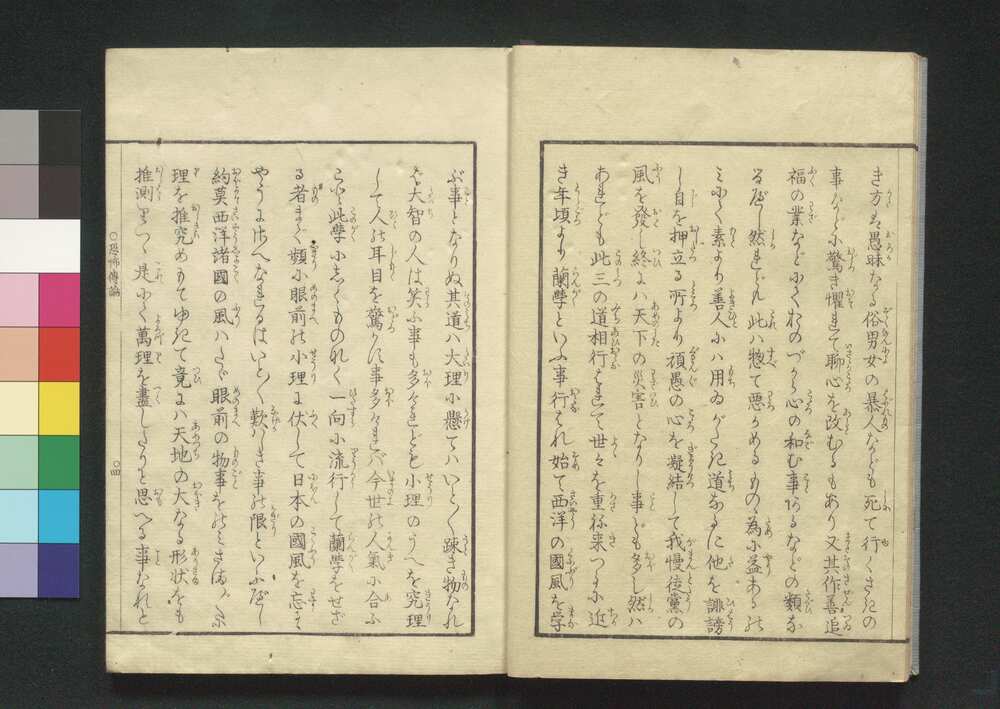 き方も愚昧なる俗男女の暴人なども死て行くさきの
事などに驚き懼れて聊心を改むるもあり又其作善追
福の業などにておのづから心の和む事あるなどの類な
るべし然れども此ハ惣て悪かめるものゝ為に益あるの
ミにて素より善人にハ用ゐがたき道なるに他を誹謗
し自を押立る所より頑愚の心を凝結して我慢徒黨の
風を發し終にハ天下の災害となりし事ども多し然ハ
あれども此三の道相行ハれて世々を重ね来つるに近
き年頃より蘭學といふ事行はれ始て西洋の國風を学
ぶ事となりぬ其道ハ大理に懸てハいといと疎き物なれ
ば大智の人は笑ふ事も多けれども小理のうへを究理
して人の耳目を驚かす事多ければ今世の人氣に合ふ
こと此學にしくものなく一向に流行して蘭學をせざ
る者まで頻に眼前の小理に伏して日本の國風を忘るゝ
やうにさへなれるはいといと歎かはしき事の限といふべし
約莫西洋諸國の風ハたゞ眼前の物事をのミさだかに
理を推究めもてゆきて竟にハ天地の大なる形状をも
推測りつゝ是にて萬理を盡したりと思へる事なれど
○恐怖傳論
○四